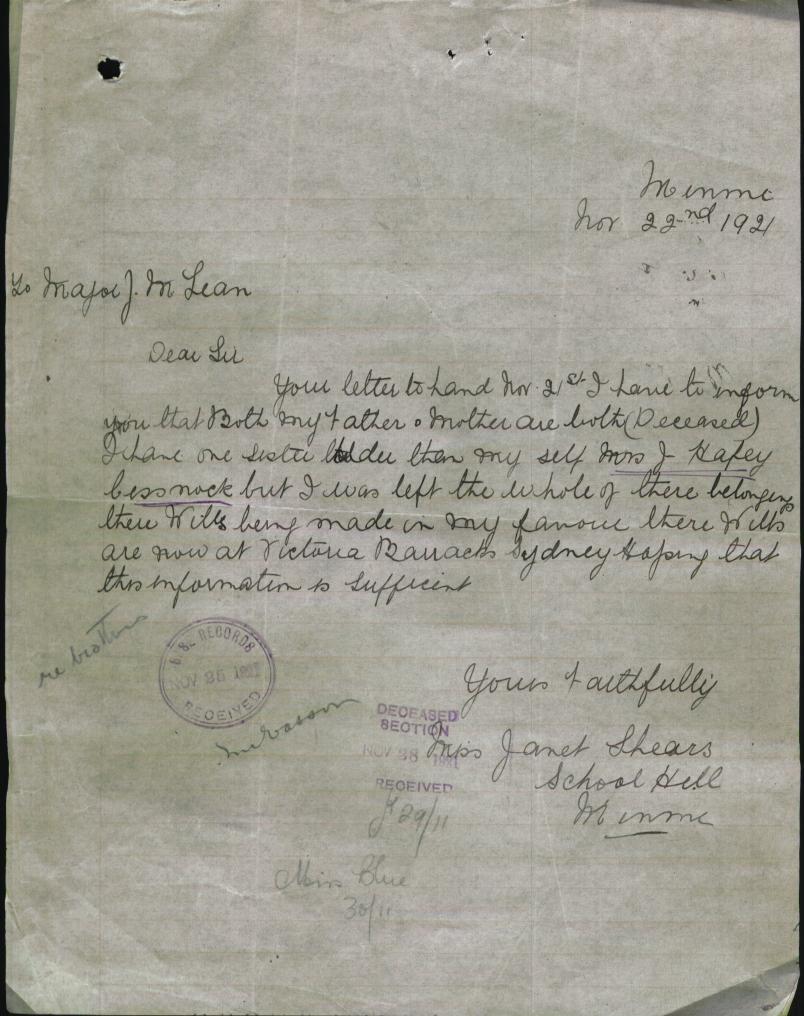 Minmi
Nov 22nd 1921
To Major J. McLean
Dear Sir
Your letter to hand Nov 21st I have to inform
you that Both my Father & Mother are both (Deceased)
I have one sister older then my self Mrs J Hafey
Cessnock but I was left the whole of there belongings
there Wills being made in my favour there Wills
are now at Victoria Barracks Sydney Hoping that
this information is sufficient
Yours Faithfully
Mrs Janet Shears
School Hill
Minmi
re brothers
RECORDS
NOV 25 1921
RECEIVED
DECEASED
SECTION
NOV 28 1921
RECEIVED
29/11
Miss Blue
30/11